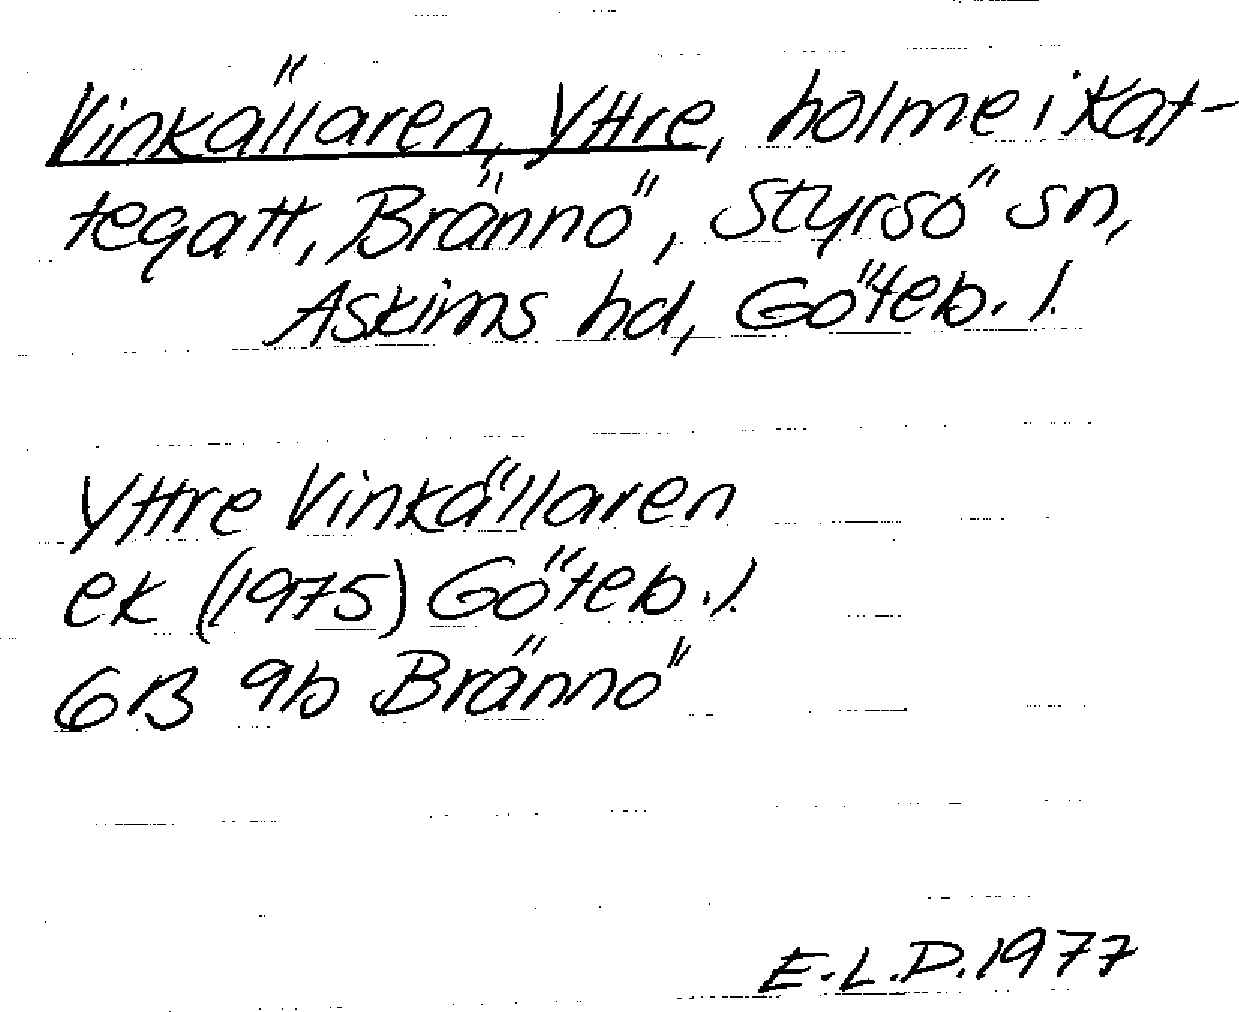 Vinkällaren, Yttre, holme i Kat-
tegatt, Brännö, Styrsö sn,
Askims hd, Göteb. l.
Yttre Vinkällaren
ek (1975) Göteb. l.
6B 9b Brännö
E.L.D. 1977